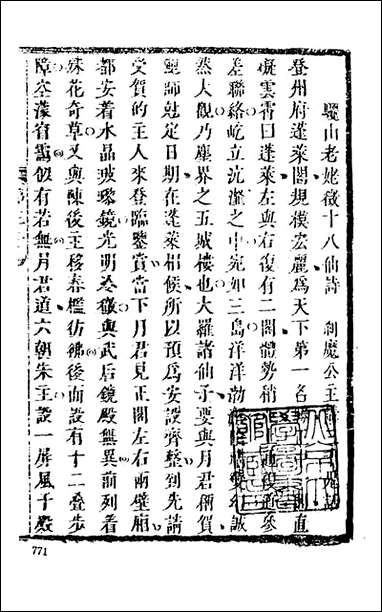 驪山老姥徵十八仙詩　剎魔公主
登州府蓬萊閣規模宏麗為天下第一名則直
凝雲霄曰蓬萊左與右復有二閣體勢稍複道參
差聯絡屹立沆瀣之中宛如三島洋洋渤誠
然大觀乃塵界之五城樓也大羅諸仙子要與月君稱賀
鮑師尅定日期在蓬萊相候所以預為安設齊整到先請
受賀的主人來登臨鑒賞當下月君見正閣左右兩壁廂
都安着水晶玻瓈鏡光明冷徹與武后鏡殿無異前列着
殊花奇草又與陳後主移春檻彷彿後面設有十二叠步
障空濛窅靄似有若無月君道六朝朱主設一屏風千嚴
771